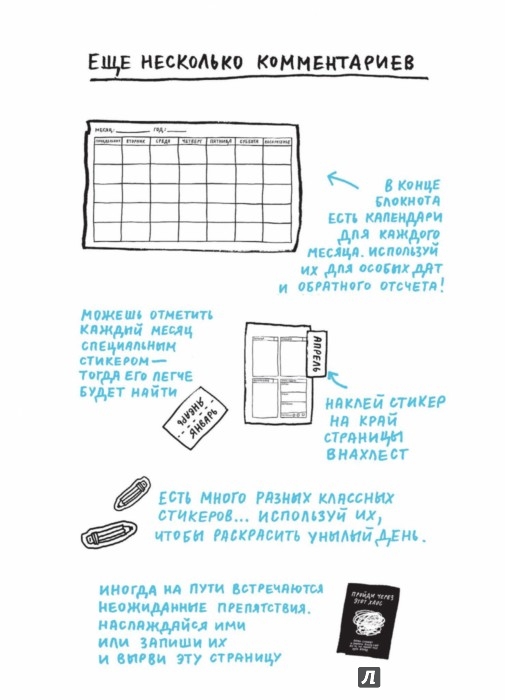 ЕЩЕ НЕСКОЛЬКО КОММЕНТАРИЕВ
МЕСЯЦ: ГОД:
ПОНЕДЕЛЬНИК ВТОРНИК СРЕДА ЧЕТВЕРГ ПЯТНИЦА СУББОТА ВОСКРЕСЕНЬЕ
В КОНЦЕ
БЛОКНОТА
ЕСТЬ КАЛЕНДАРИ
ДЛЯ КАЖДОГО
МЕСЯЦА. ИСПОЛЬЗУЙ
ИХ ДЛЯ ОСОБЫХ ДАТ
И ОБРАТНОГО ОТСЧЕТА!
МОЖЕШЬ ОТМЕТИТЬ
КАЖДЫЙ МЕСЯЦ
СПЕЦИАЛЬНЫМ
СТИКЕРОМ—
ТОГДА ЕГО ЛЕГЧЕ
БУДЕТ НАЙТИ
АПРЕЛЬ
ЯНВАРЬ
ЯНВАРЬ
НАКЛЕЙ СТИКЕР
НА КРАЙ
СТРАНИЦЫ
ВНАХЛЕСТ
ЕСТЬ МНОГО РАЗНЫХ КЛАССНЫХ
СТИКЕРОВ... ИСПОЛЬЗУЙ ИХ,
ЧТОБЫ РАСКРАСИТЬ УНЫЛЫЙ ДЕНЬ.
ИНОГДА НА ПУТИ ВСТРЕЧАЮТСЯ
НЕОЖИДАННЫЕ ПРЕПЯТСТВИЯ.
НАСЛАЖДАЙСЯ ИМИ
ИЛИ ЗАПИШИ ИХ
И ВЫРВИ ЭТУ СТРАНИЦУ
ПРОЙДИ ЧЕРЕЗ
ЭТОТ ХАОС
Л